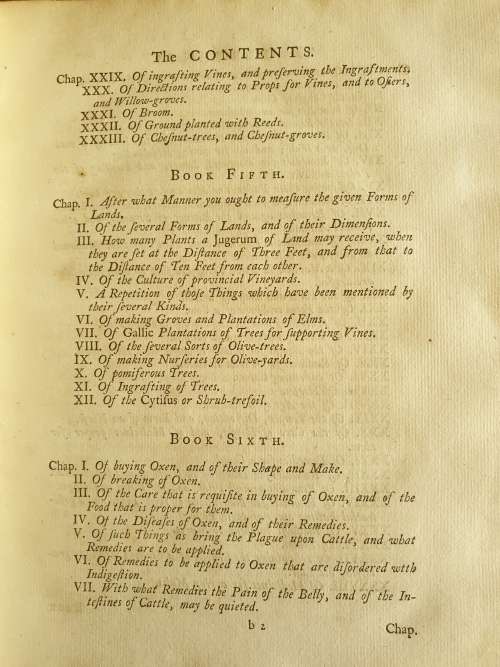 The CONTENTS.
Chap. XXIX. Of ingrafting Vines, and preſerving the Ingraftments.
XXX. Of Directions relating to Props for Vines, and to Oſiers,
and Willow-groves.
XXXI. Of Broom.
XXXII. Of Ground planted with Reeds.
XXXIII. Of Cheſnut-trees, and Cheſnut-groves.
BOOK FIFTH.
Chap. I. After what Manner you ought to meaſure the given Forms of
Lands.
II. Of the ſeveral Forms of Lands, and of their Dimenſions.
III. How many Plants a Jugerum of Land may receive, when
they are ſet at the Diſtance of Three Feet, and from that to
the Diſtance of Ten Feet from each other.
IV. Of the Culture of provincial Vineyards.
V. A Repetition of thoſe Things which have been mentioned by
their ſeveral Kinds.
VI. Of making Groves and Plantations of Elms.
VII. Of Gallic Plantations of Trees for ſupporting Vines.
VIII. Of the ſeveral Sorts of Olive-trees.
IX. Of making Nurſeries for Olive-yards.
X. Of pomiferous Trees.
XI. Of Ingrafting of Trees.
XII. Of the Cytiſus or Shrub-trefoil.
BOOK SIXTH.
Chap. I. Of buying Oxen, and of their Shape and Make.
II. Of breaking of Oxen.
III. Of the Care that is requiſite in buying of Oxen, and of the
Food that is proper for them.
IV. Of the Diſeaſes of Oxen, and of their Remedies.
V. Of ſuch Things as bring the Plague upon Cattle, and what
Remedies are to be applied.
VI. Of Remedies to be applied to Oxen that are diſordered with
Indigeſtion.
VII. With what Remedies the Pain of the Belly, and of the In-
teſtines of Cattle, may be quieted.
b 2
Chap.